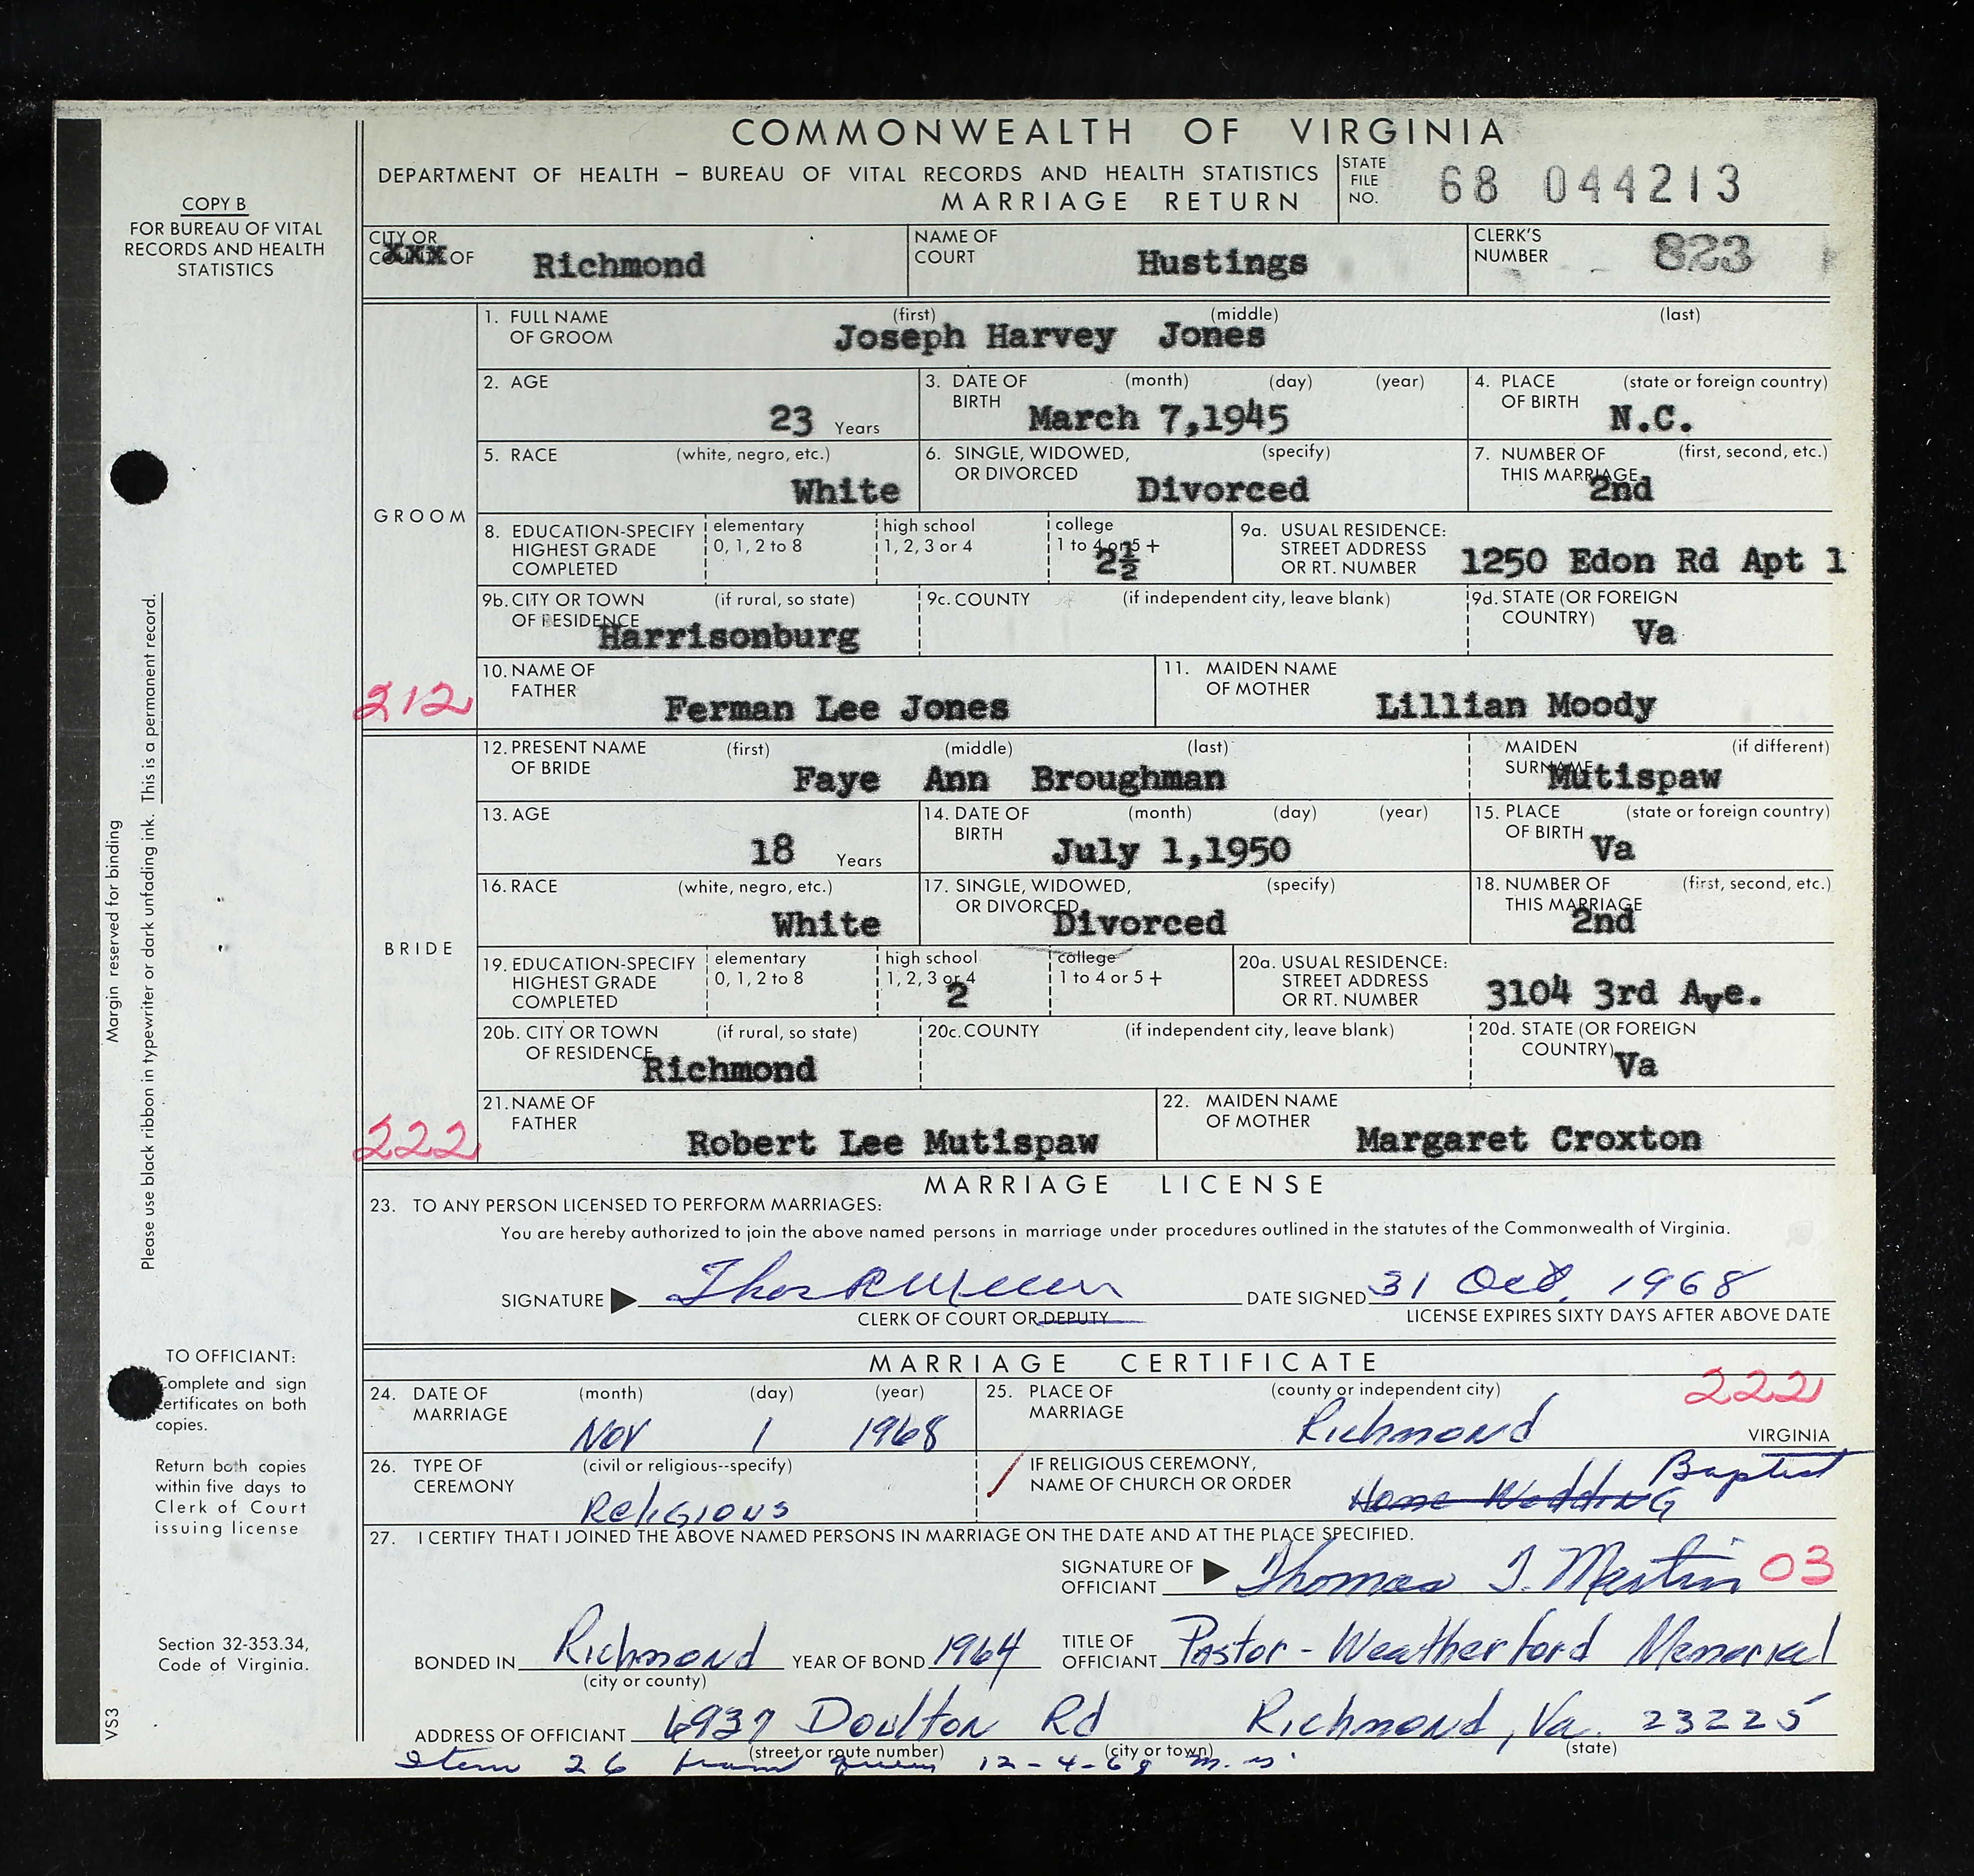 COMMONWEALTH OF VIRGINIA
DEPARTMENT OF HEALTH – BUREAU OF VITAL RECORDS AND HEALTH STATISTICS
MARRIAGE RETURN
STATE FILE NO. 68 044213
COPY B
FOR BUREAU OF VITAL
RECORDS AND HEALTH
STATISTICS
CITY OR COUNTY OF Richmond
NAME OF COURT Hustings
CLERK'S NUMBER 823
GROOM
1. FULL NAME OF GROOM (first) (middle) (last)
Joseph Harvey Jones
2. AGE 23 Years
3. DATE OF BIRTH (month) (day) (year) March 7,1945
4. PLACE OF BIRTH (state or foreign country) N.C.
5. RACE (white, negro, etc.) White
6. SINGLE, WIDOWED, OR DIVORCED (specify) Divorced
7. NUMBER OF THIS MARRIAGE (first, second, etc.) 2nd
8. EDUCATION-SPECIFY HIGHEST GRADE COMPLETED
elementary 0, 1, 2 to 8
high school 1, 2, 3 or 4
college 1 to 4 or 5 + 2½
9a. USUAL RESIDENCE: STREET ADDRESS OR RT. NUMBER 1250 Edon Rd Apt 1
9b. CITY OR TOWN OF RESIDENCE (if rural, so state) Harrisonburg
9c. COUNTY (if independent city, leave blank)
9d. STATE (OR FOREIGN COUNTRY) Va
10. NAME OF FATHER Ferman Lee Jones
11. MAIDEN NAME OF MOTHER Lillian Moody
212
BRIDE
12. PRESENT NAME OF BRIDE (first) (middle) (last) Faye Ann Broughman
MAIDEN SURNAME (if different) Mutispaw
13. AGE 18 Years
14. DATE OF BIRTH (month) (day) (year) July 1,1950
15. PLACE OF BIRTH (state or foreign country) Va
16. RACE (white, negro, etc.) White
17. SINGLE, WIDOWED, OR DIVORCED (specify) Divorced
18. NUMBER OF THIS MARRIAGE (first, second, etc.) 2nd
19. EDUCATION-SPECIFY HIGHEST GRADE COMPLETED
elementary 0, 1, 2 to 8
high school 1, 2, 3 or 4 2
college 1 to 4 or 5 +
20a. USUAL RESIDENCE: STREET ADDRESS OR RT. NUMBER 3104 3rd Ave.
20b. CITY OR TOWN OF RESIDENCE (if rural, so state) Richmond
20c. COUNTY (if independent city, leave blank)
20d. STATE (OR FOREIGN COUNTRY) Va
21. NAME OF FATHER Robert Lee Mutispaw
22. MAIDEN NAME OF MOTHER Margaret Croxton
222
MARRIAGE LICENSE
23. TO ANY PERSON LICENSED TO PERFORM MARRIAGES:
You are hereby authorized to join the above named persons in marriage under procedures outlined in the statutes of the Commonwealth of Virginia.
SIGNATURE
DATE SIGNED 31 Oct. 1968
CLERK OF COURT OR DEPUTY
LICENSE EXPIRES SIXTY DAYS AFTER ABOVE DATE
MARRIAGE CERTIFICATE
24. DATE OF MARRIAGE (month) (day) (year) Nov 1 1968
25. PLACE OF MARRIAGE (county or independent city) Richmond VIRGINIA
222
26. TYPE OF CEREMONY (civil or religious--specify) Religious
IF RELIGIOUS CEREMONY, NAME OF CHURCH OR ORDER Home Wedding Baptist
27. I CERTIFY THAT I JOINED THE ABOVE NAMED PERSONS IN MARRIAGE ON THE DATE AND AT THE PLACE SPECIFIED.
SIGNATURE OF OFFICIANT Thomas T. Martin 03
BONDED IN Richmond (city or county)
YEAR OF BOND 1964
TITLE OF OFFICIANT Pastor - Weatherford Memorial
ADDRESS OF OFFICIANT 6937 Doulton Rd Richmond, Va. 23225
(street or route number) (city or town) (state)
Item 26 from 12-4-68
Margin reserved for binding
Please use black ribbon in typewriter or dark unfading ink. This is a permanent record.
VS3
TO OFFICIANT:
Complete and sign
certificates on both
copies.
Return both copies
within five days to
Clerk of Court
issuing license
Section 32-353.34,
Code of Virginia.